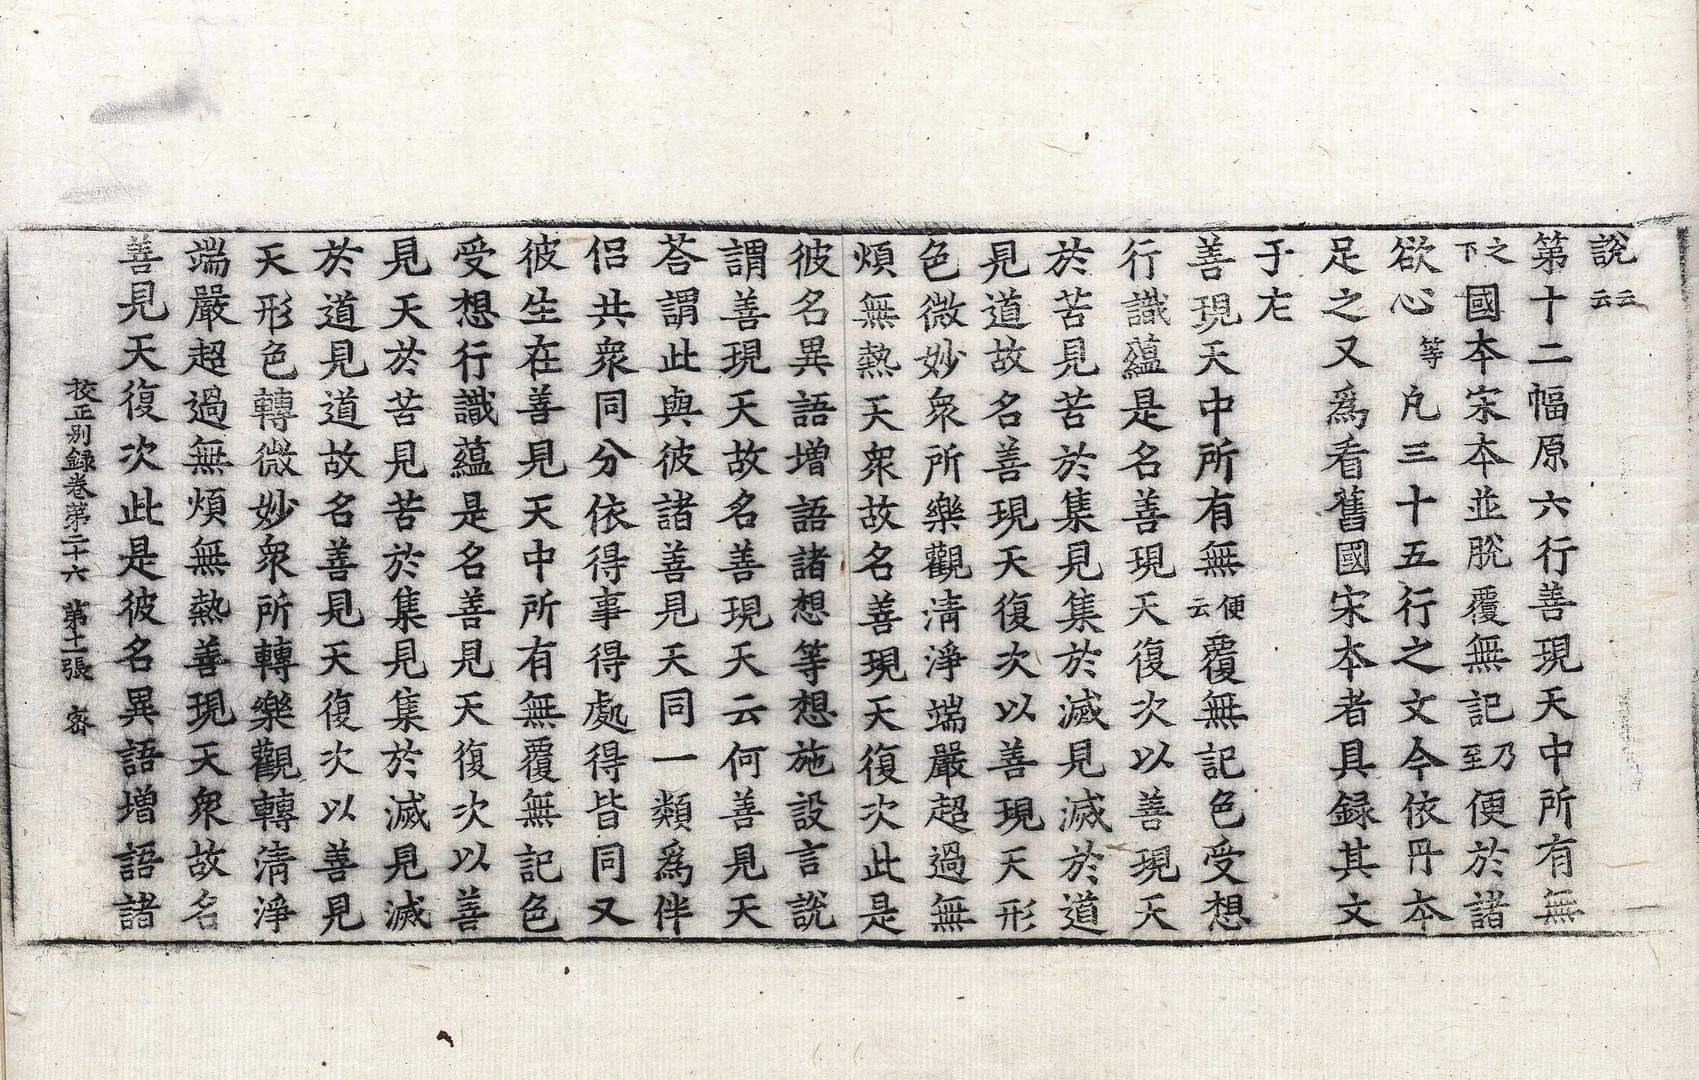 說云云
第十二幅原六行善現天中所有無
之下國夲宋夲並脫覆無記乃至便於諸
欲心等凡三十五行之文今依丹夲
足之又爲看舊國宋夲者具録其文
于左
善現天中所有無便云覆無記色受想
行識蘊是名善現天復次以善現天
於苦見苦於集見集於滅見滅於道
見道故名善現天復次以善現天形
色微妙衆所樂觀清淨端嚴超過無
煩無熱天衆故名善現天復次此是
彼名異語增語諸想等想施設言說
謂善現天故名善現天云何善見天
荅謂此與彼諸善見天同一類爲伴
侣共衆同分依得事得處得皆同又
彼生在善見天中所有無覆無記色
受想行識蘊是名善見天復次以善
見天於苦見苦於集見集於滅見滅
於道見道故名善見天復次以善見
天形色轉微妙衆所轉樂觀轉清淨
端嚴超過無煩無熱善現天衆故名
善見天復次此是彼名異語增語諸
校正別録卷第二十六 第十一張 密